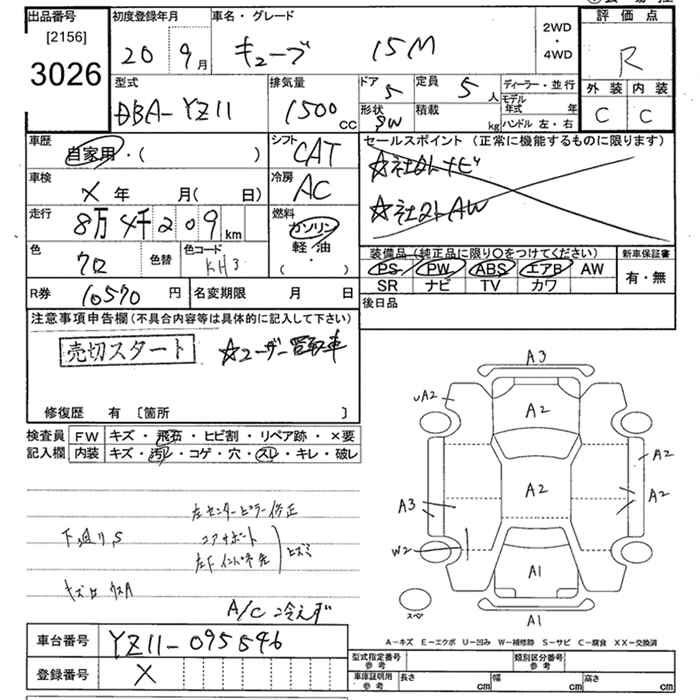 出品番号 初度登録年月 車名・グレード 評価点
[2156]
3026
20 9月 キューブ 15M 2WD・4WD R
型式 排気量 ドア 定員 ディーラー・並行 外装 内装
DBA-YZ11 1500CC 5 5人 モデル年式 年 C C
形状 積載 ハンドル 左・右
SW kg
車歴 自家用・( ) シフト CAT セールスポイント(正常に機能するものに限ります)
☆社外ナビ
車検 × 年 月(日) 冷房 AC
☆社外AW
走行 8万4千209km 燃料 ガソリン 軽・油 ( )
色 クロ 色替 色コード KH3
装備品(純正品に限り〇をつけてください) 新車保証書
PS PW ABS エアB AW 有・無
SR ナビ TV カワ
R券 10570円 名変期限 月 日 後日品
注意事項申告欄(不具合内容等は具体的に記入して下さい)
売切スタート ☆ユーザー買取車
修復歴 有 [箇所 ]
検査員 FW キズ・飛石・ヒビ割・リペア跡・×要
記入欄 内装 キズ・汚レ・コゲ・穴・スレ・キレ・破レ
左センターピラー修正
下廻りS コアサポート
ヒズミ
A/C冷えず
A3
UA2
A2
A2
A2
A2
A3
W2
A1
スペア
A1
A−キズ E−エクボ U−凹み W−補修跡 S−サビ C−腐食 XX−交換済
車台番号 YZ11-095546
登録番号 ×
型式指定番号 参考 類別区分番号 参考
車庫証明用 参考 長さ cm 幅 cm 高さ cm